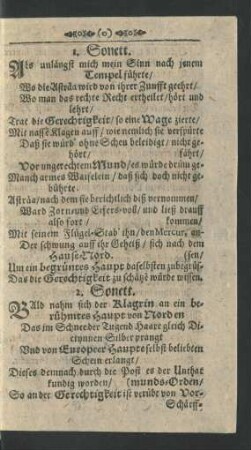 (0)
1. Sonett.
Als unlängst mich mein Sinn nach jenem
Tempel führte/
Wo die Asträa wird von ihrer Zunfft geehrt/
Wo man das rechte Recht ertheilet/hört und
lehrt/
Trat die Gerechtigkeit/ so eine Wage zierte/
Mit nasse Klagen auff/ wie nemlich sie verspürte
Daß sie würd' ohne Scheu beleidigt/ nicht ge-
hört/ führt/
Vor ungerechtem Mund/ es würde drinn ge-
Manch armes Waiselein/ daß sich doch nicht ge-
bührte.
Asträa/ nach dem sie berichtlich diß vernommen/
Ward Zorn- und Eifers-voll/ und ließ drauff
also fort/ kommen/
Mit seinem Flügel-Stab' ihn/ den Mercur, an-
Der schwung auff ihr Geheiß/ sich nach dem
Hause-Nord. (sen/
Um ein begrüntes Haupt daselbsten zubegrüs-
Das die Gerechtigkeit zu schützē würde wissen.
2. Sonett.
Bald nahm sich der Klagrin an ein be-
rühmtes Haupt von Norden
Das im Schnee der Tugend Haare gleich Di-
ctynnen Silber prangt
Vnd von Europeer Haupt selbst beliebten
Schein erlangt/
Dieses demnach durch die Post es der Unthat
kundig worden/ (munds-Orden/
So an der Gerechtigkeit ist verübt von Vor-
Schärff-